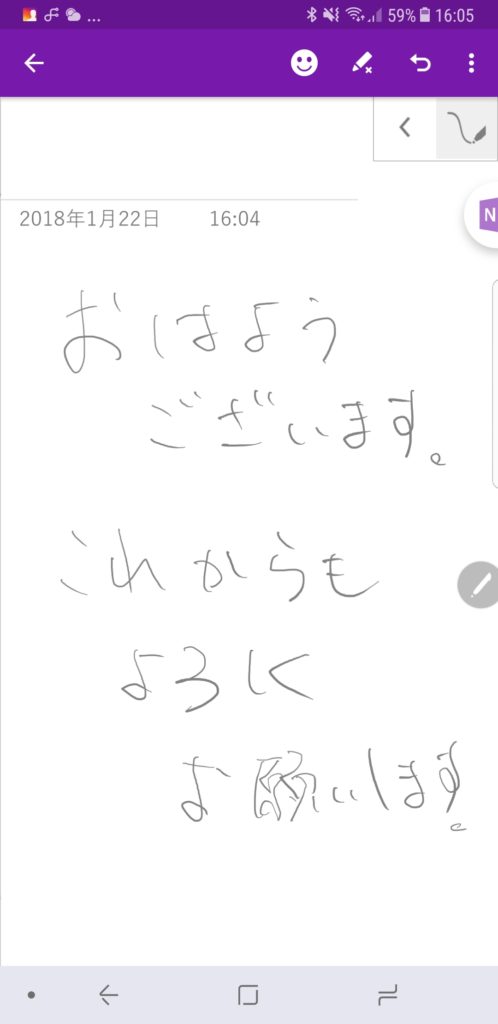 59% 16:05
2018年1月22日 16:04
N
おはよう
ございます。
これからも
よろしく
お願いします。